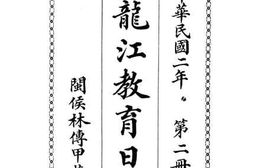 華民國二年。第二冊
龍江教育日
閩侯林傳甲